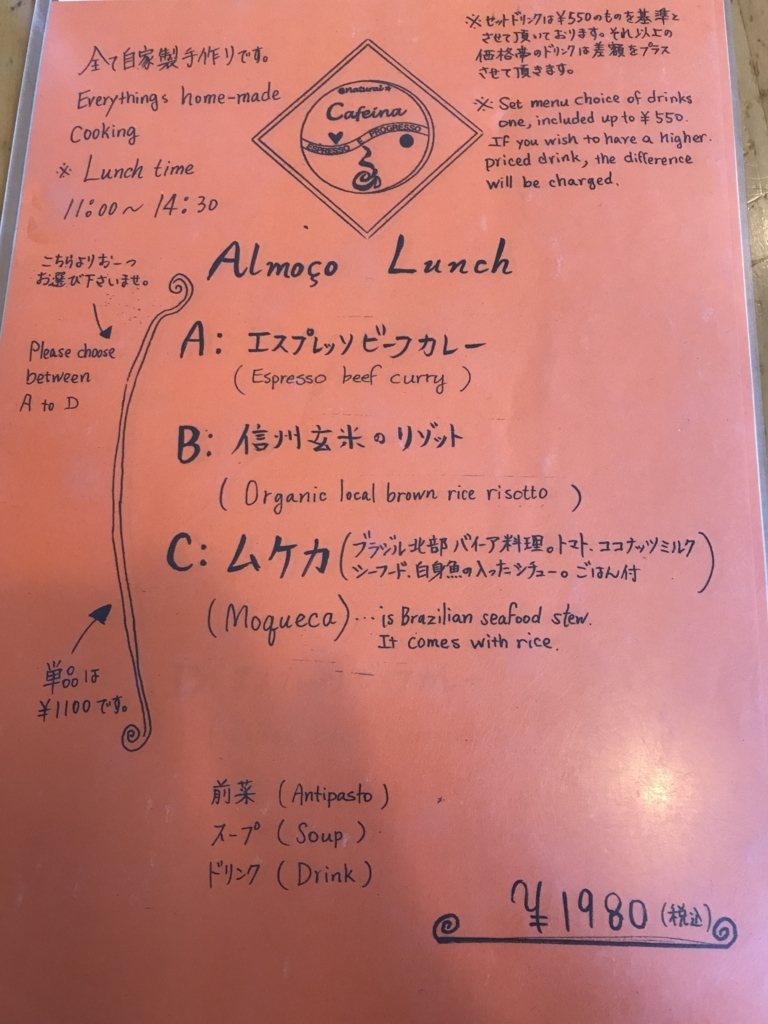 全て自家製手作りです。
Everythings home-made
Cooking
※ Lunch time
11:00~14:30
natural
Cafeina
ESPRESSO E PROGRESSO
※セットドリンクは¥550のものを基準と
させて頂いております。それ以上の
価格帯のドリンクは差額をプラス
させて頂きます。
※ Set menu choice of drinks
one, included up to ¥550.
If you wish to have a higher.
priced drink, the difference
will be charged.
Almoço Lunch
こちらよりお一つ
お選び下さいませ。
Please choose
between
A to D
A: エスプレッソビーフカレー
(Espresso beef curry)
B: 信州玄米のリゾット
(Organic local brown rice risotto)
C: ムケカ(ブラジル北部バイーア料理。トマト、ココナッツミルク
シーフード、白身魚の入ったシチュー。ごはん付)
(Moqueca)…is Brazilian seafood stew.
It comes with rice.
単品は
¥1100です。
前菜 (Antipasto)
スープ (Soup)
ドリンク (Drink)
¥1980(税込)